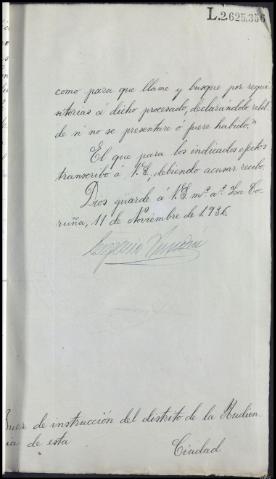 L.2.625.356
como para que llame y busque por requi
sitorias á dicho procesado, declarándole rebel
de si no se presentare ó fuere habido."
El que para los indicados efectos
transcribo á V.S, debiendo acusar recibo.
Dios guarde á V.S. m.s a.s La Co-
ruña, 11 de Noviembre de 1936
Eugenio
Juez de instrucción del distrito de la Audien
cia de esta
Ciudad